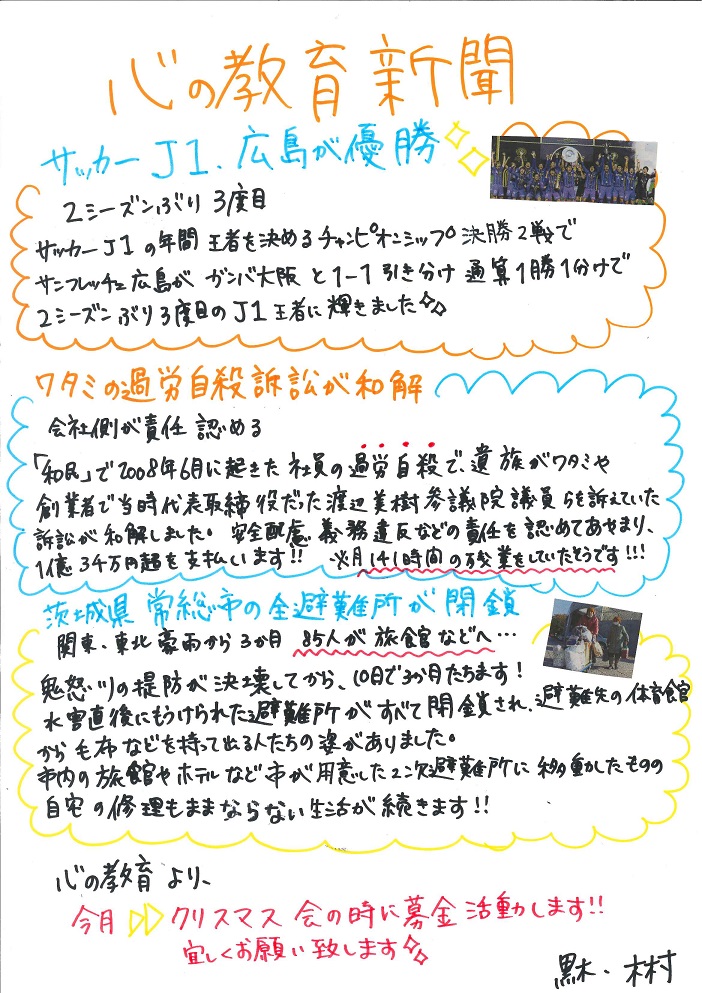 心の教育新聞
サッカーJ1、広島が優勝
2シーズンぶり3度目
サッカーJ1の年間王者を決めるチャンピオンシップ決勝2戦で
サンフレッチェ広島がガンバ大阪と1-1引き分け通算1勝1分けで
2シーズンぶり3度目のJ1王者に輝きました
ワタミの過労自殺訴訟が和解
会社側が責任認める
「和民」で2008年6月に起きた社員の過労自殺で、遺族がワタミや
創業者で当時代表取締役だった渡辺美樹参議院議員らを訴えていた
訴訟が和解しました。安全配慮義務違反などの責任を認めてあやまり、
1億34千万円超を支払います!! ※月141時間の残業をしていたそうです!!!
茨城県常総市の全避難所が閉鎖
関東・東北豪雨から3か月 85人が旅館などへ…
鬼怒川の堤防が決壊してから、10日で3か月たちます!
水害直後にもうけられた避難所がすべて閉鎖され、避難先の体育館
から毛布などを持って出る人たちの姿がありました。
市内の旅館やホテルなど市が用意した2次避難所に移動したものの
自宅の修理もままならない生活が続きます!!
心の教育より、
今月 クリスマス会の時に募金活動します!!
宜しくお願い致します
黒木・木村